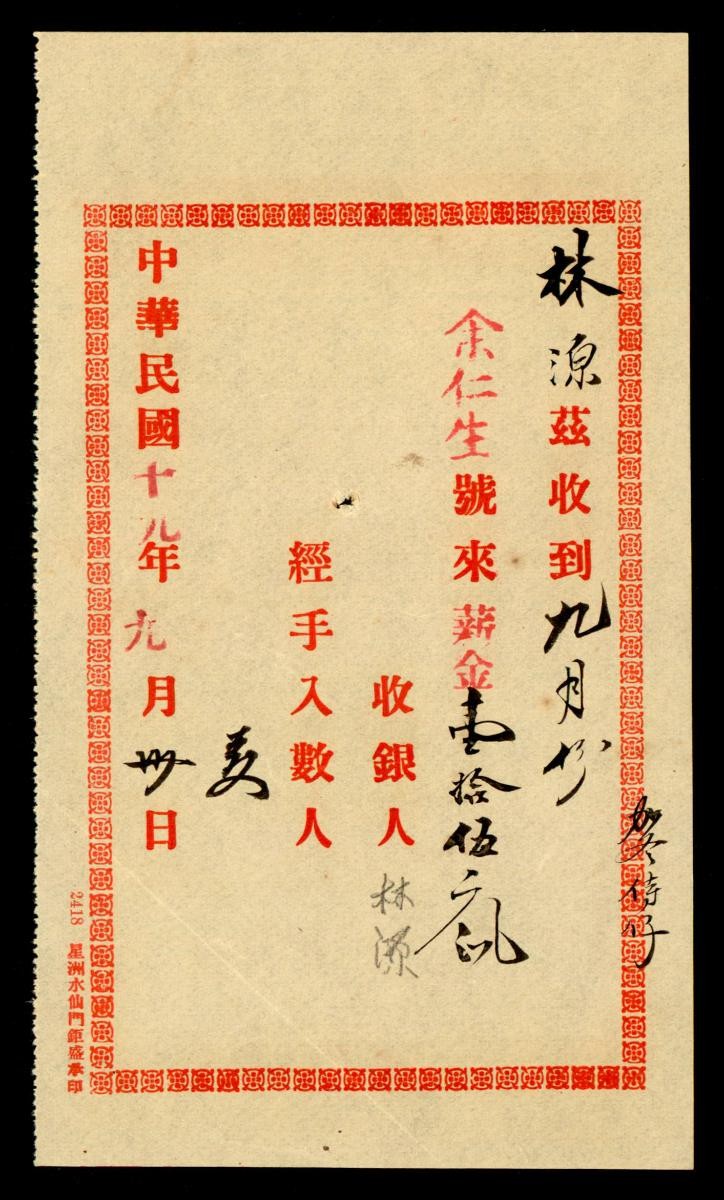 林源茲收到九月份
余仁生號來薪金壹拾伍元
收銀人林源
經手入數人
中華民國十九年九月卅日
2418 星洲水仙門鉅盛承印